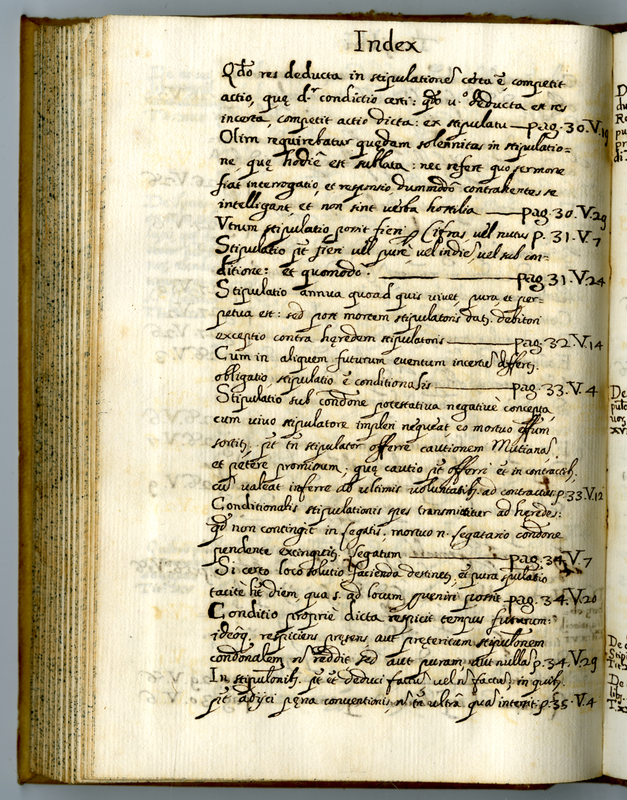 Index
Qdo res deducta in stipulatione certa ē, competit
actio, quę dr condictio certi: qdo uo deducta est res
incerta, competit actio dicta: ex stipulatu — pag. 30. V. 19
Olim requirebatur quędam solemnitas in stipulatio=
ne quę hodiè est sublata: nec refert quo sermone
fiat interrogatio, et responsio, dummodò contrahentes se
intelligant, et non sint verba hostilia — pag. 30. V. 29
Vtrum stipulatio possit fieri p Cifras, uel nutus p. 31. V. 7
Stipulatio pt fieri uel purè, uel in diē, uel sub con-
ditione: et quomodo. — pag. 31. V. 24
Stipulatio annua quoad quis uiuet, pura et per-
petua est: sed post mortem stipulatoris dat. debitori
exceptio contra hęredem stipulatoris — pag. 32. V. 14
Cum in aliquem futurum euentum incertū differt.
obligatio, stipulatio ē conditionalis — pag. 33. V. 4
Stipulatio sub condone potestatiua negatiuè concepta,
cum uiuo stipulatore impleri nequeat, eo mortuo effum
sortit, pt tn stipulator offerre cautionem Mutianā,
et petere promissum; quę cautio pt offerri et in contractib.
cū valeat inferre ab ultimis uoluntatib. ad contractus p. 33. V. 12
Conditionalis stipulationis spes transmittitur ad hęredes:
qd non contingit in legatis. mortuo n. legatario condone
pendente extinguit. legatum — pag. 34. V. 7
Si certo loco solutio facienda destinet, et pura stpulatio
tacitè ht diem qua s. ad locum pueniri possit. pag. 34. V. 20
Conditio propriè dicta respicit tempus futurum:
ideoq. respiciens pręsens, aut pręteritum stipulonem
condonalem n reddit sed aut puram, aut nullā p. 34. V. 29
In stipulonib. pt et deduci factū uel n factū: in quib.
pt adijci pęna conuentionis, n tn ultrà quā interest. p. 35. V. 4